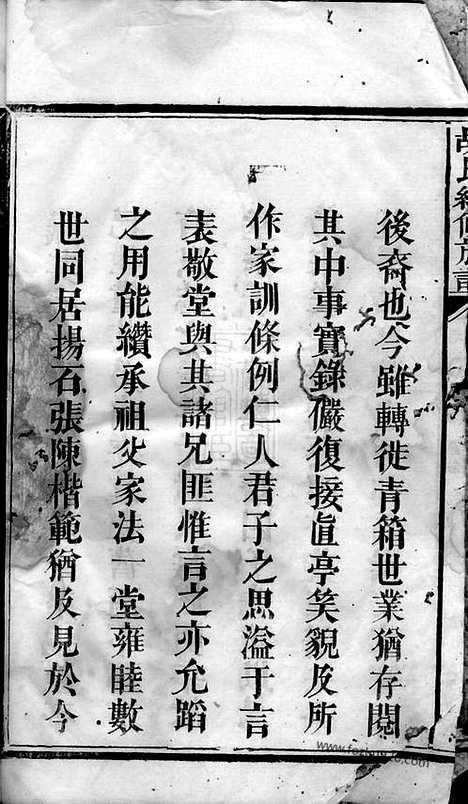 胡氏續修族譜
後裔也今雖轉徙青箱世業猶存閱
其中事實錄儼復接眞亭笑貌及所
作家訓條例仁人君子之思溢于言
表敬堂與其諸兄匪惟言之亦允蹈
之用能纘承祖父家法一堂雍睦數
世同居揚石張陳楷範猶及見於今